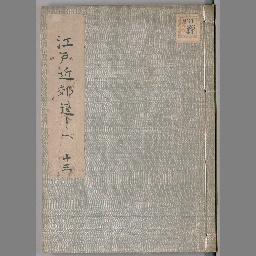 江戸近郊道しるべ 十三